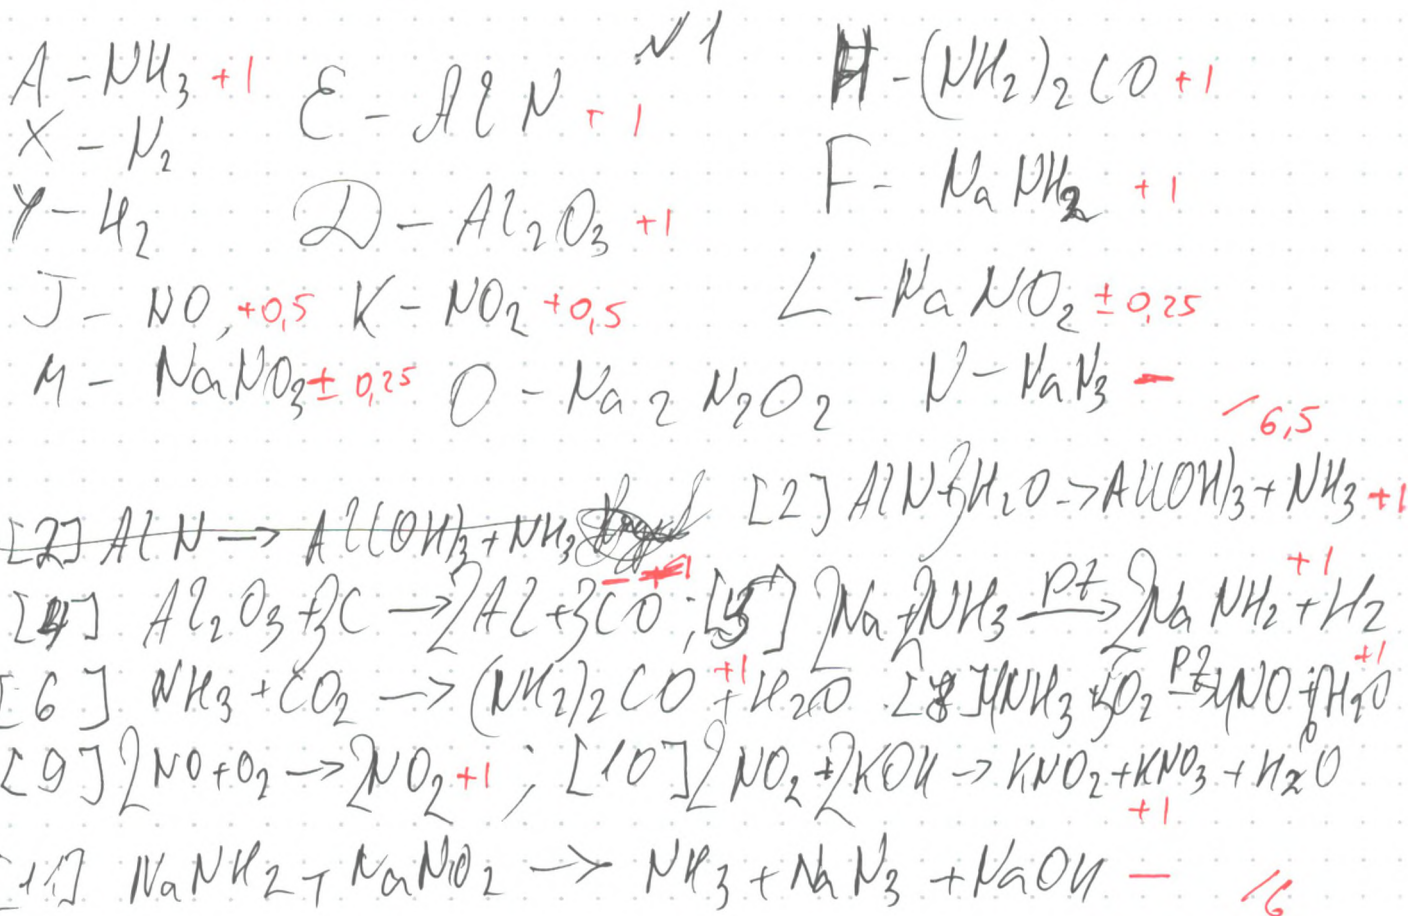 N1
A - NH3 +1 E - AlN +1 H - (NH2)2CO +1
X - N2
Y - H2 D - Al2O3 +1 F - NaNH2 +1
J - NO, +0,5 K - NO2 +0,5 L - NaNO2 ± 0,25
M - NaNO3 ± 0,25 O - Na2N2O2 N - NaN3 -
/6,5
[2] AlN + 3H2O -> Al(OH)3 + NH3 +1
[2] AlN -> Al(OH)3 + NH3
[4] Al2O3 + 3C -> 2Al + 3CO - ; [5] 2Na + 2NH3 Pt -> 2NaNH2 + H2 +1
[6] NH3 + CO2 -> (NH2)2CO + H2O +1 [8] 4NH3 + 5O2 Pt -> 4NO + 6H2O +1
[9] 2NO + O2 -> 2NO2 +1 ; [10] 2NO2 + 2KOH -> KNO2 + KNO3 + H2O +1
[11] NaNH2 + NaNO2 -> NH3 + NaN3 + NaOH -
/6